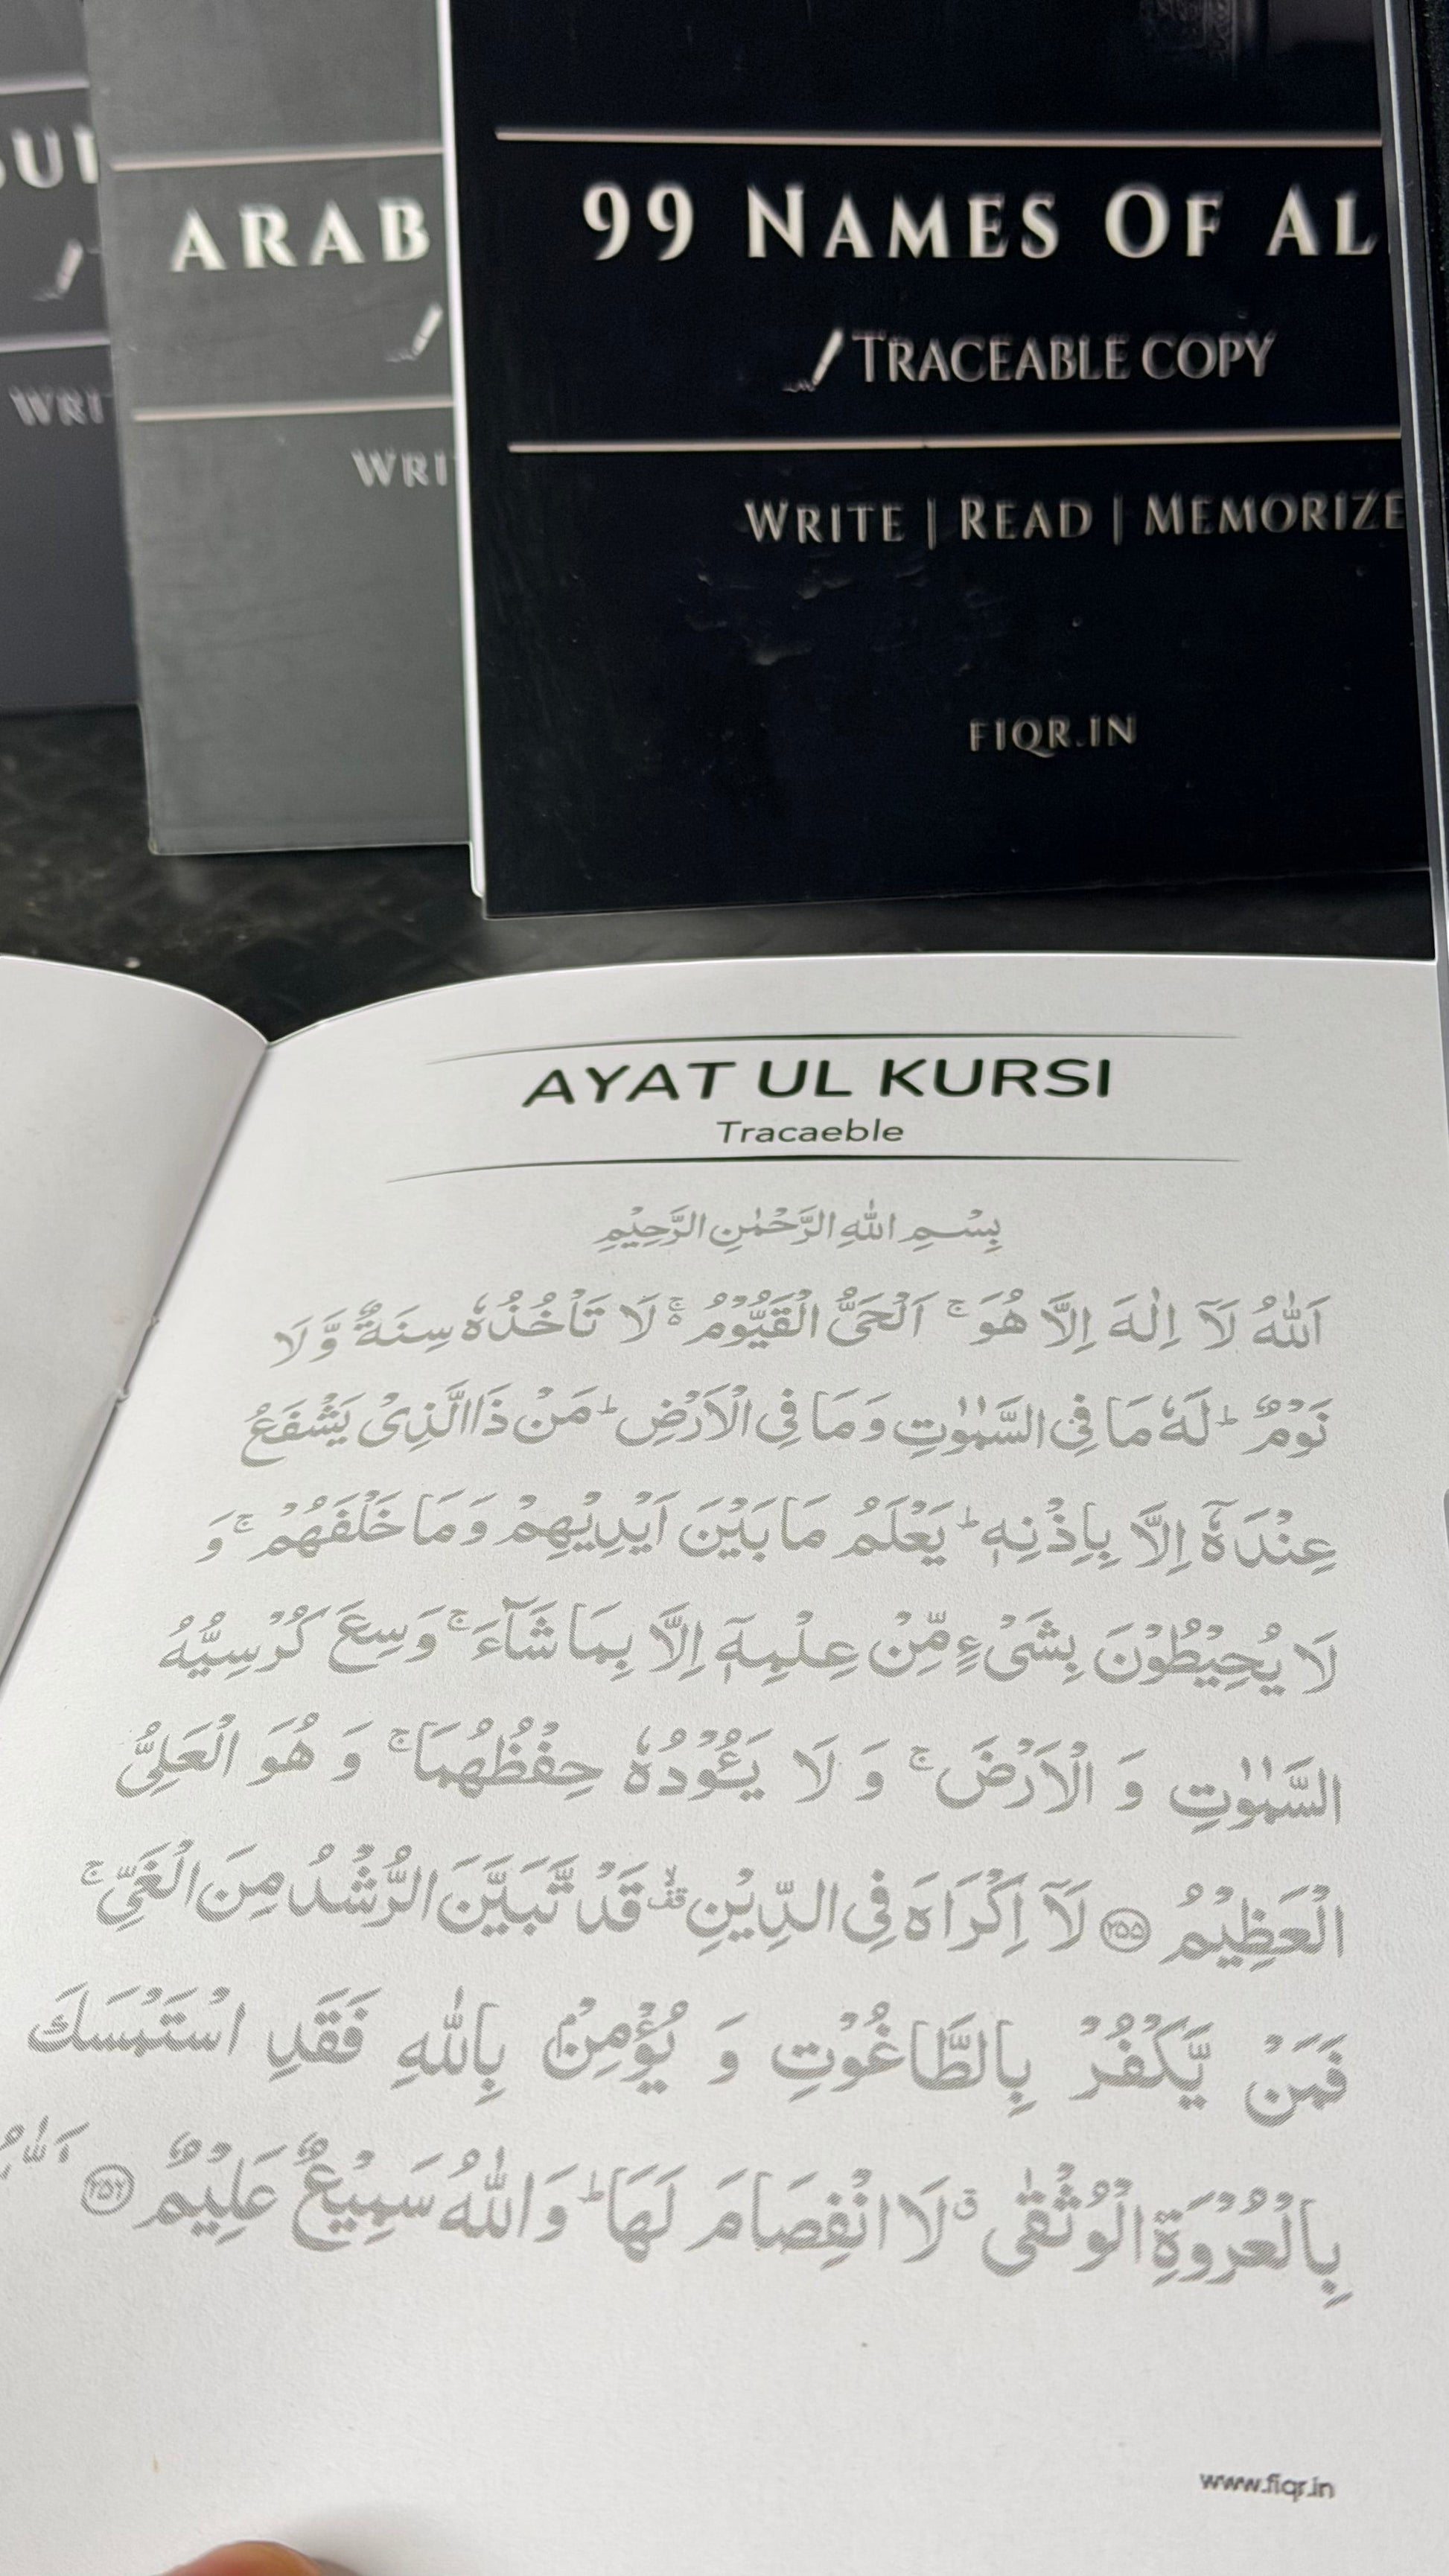 ARAB
WRI
99 NAMES OF AL
TRACEABLE COPY
WRITE | READ | MEMORIZE
FIQR.IN
AYAT UL KURSI
Tracaeble
بِسْمِ اللهِ الرَّحْمٰنِ الرَّحِيْمِ
اَللّٰهُ لَاۤ اِلٰهَ اِلَّا هُوَ ۚ اَلْحَیُّ الْقَیُّوْمُ ۚ۬ لَا تَاْخُذُهٗ سِنَةٌ وَّ لَا
نَوْمٌ ؕ لَهٗ مَا فِی السَّمٰوٰتِ وَ مَا فِی الْاَرْضِ ؕ مَنْ ذَا الَّذِیْ یَشْفَعُ
عِنْدَهٗۤ اِلَّا بِاِذْنِهٖ ؕ یَعْلَمُ مَا بَیْنَ اَیْدِیْهِمْ وَ مَا خَلْفَهُمْ ۚ وَ
لَا یُحِیْطُوْنَ بِشَیْءٍ مِّنْ عِلْمِهٖۤ اِلَّا بِمَا شَآءَ ۚ وَسِعَ كُرْسِیُّهُ
السَّمٰوٰتِ وَ الْاَرْضَ ۚ وَ لَا یَـُٔوْدُهٗ حِفْظُهُمَا ۚ وَ هُوَ الْعَلِیُّ
الْعَظِیْمُ ۝۲۵۵ لَاۤ اِكْرَاهَ فِی الدِّیْنِ ۙ۫ قَدْ تَّبَیَّنَ الرُّشْدُ مِنَ الْغَیِّ ۚ
فَمَنْ یَّكْفُرْ بِالطَّاغُوْتِ وَ یُؤْمِنْۢ بِاللّٰهِ فَقَدِ اسْتَمْسَكَ
بِالْعُرْوَةِ الْوُثْقٰی ۗ لَا انْفِصَامَ لَهَا ؕ وَ اللّٰهُ سَمِیْعٌ عَلِیْمٌ ۝۲۵۶
www.fiqr.in